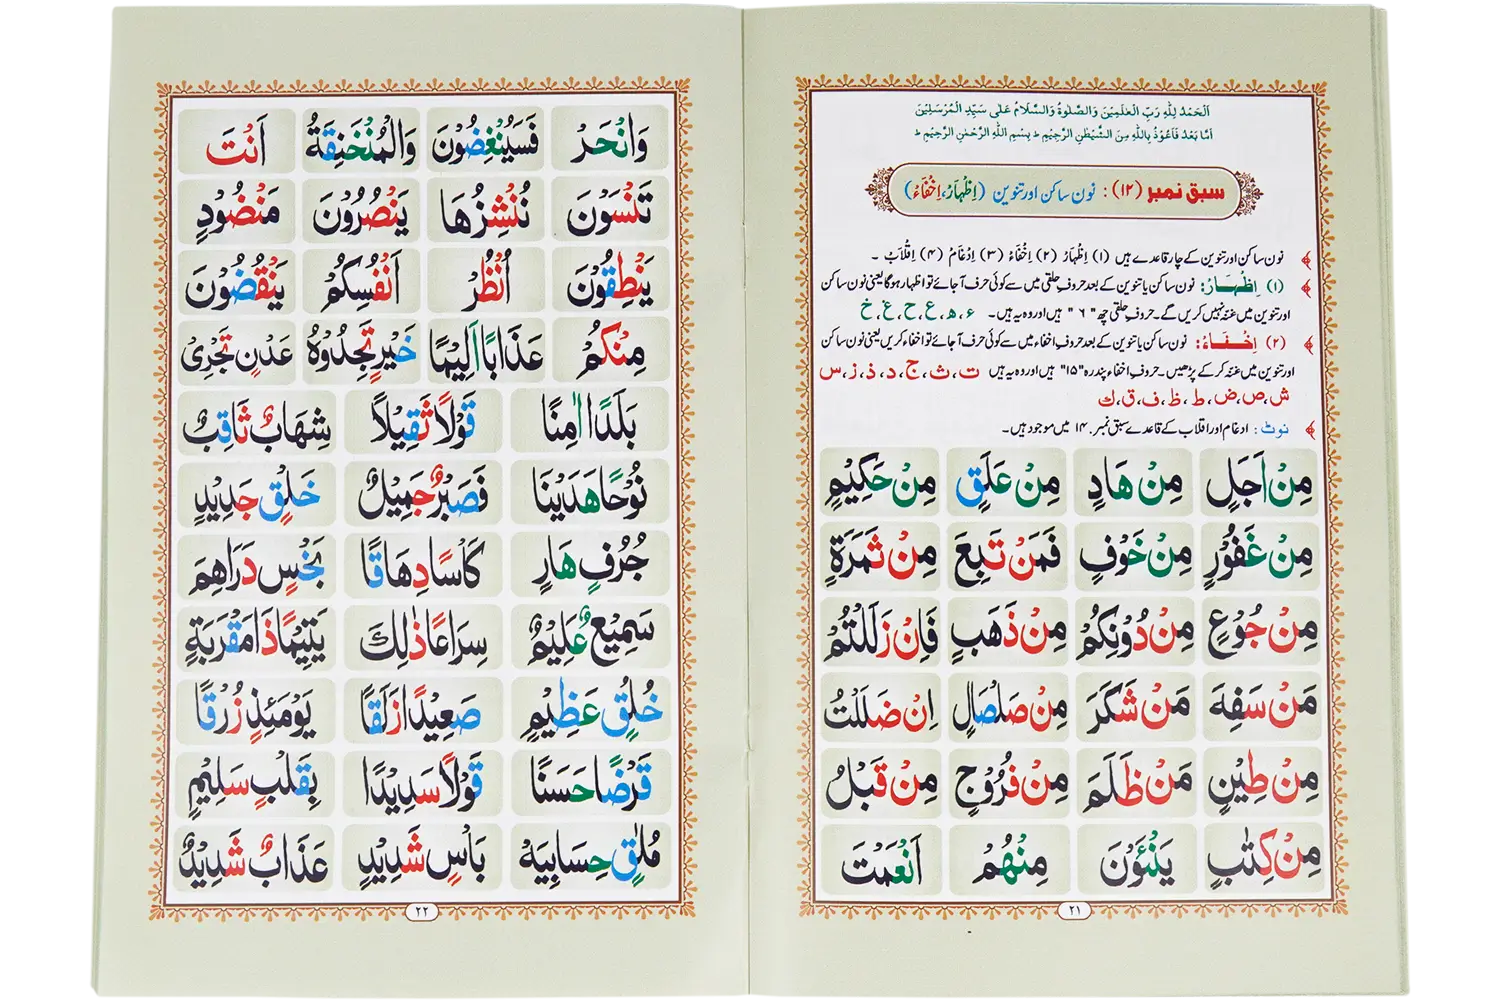 اَلْحَمْدُ لِلّٰهِ رَبِّ الْعٰلَمِیْنَ وَالصَّلٰوۃُ وَالسَّلَامُ عَلٰی سَیِّدِ الْمُرْسَلِیْنَ
اَمَّا بَعْدُ فَاَعُوْذُ بِاللّٰہِ مِنَ الشَّیْطٰنِ الرَّجِیْمِ ؕ بِسْمِ اللّٰہِ الرَّحْمٰنِ الرَّحِیْمِ ؕ
سبق نمبر (۱۲) : نون ساکن اور تنوین (اِظْہَارْ، اِخْفَاءْ)
نون ساکن اور تنوین کے چار قاعدے ہیں (۱) اِظْہَارْ (۲) اِخْفَاءْ (۳) اِدْغَامْ (۴) اِقْلَابْ ۔
(۱) اِظْہَارْ: نون ساکن یا تنوین کے بعد حروفِ حلقی میں سے کوئی حرف آجائے تو اظہار ہوگا یعنی نون ساکن
اور تنوین میں غنّہ نہیں کریں گے۔ حروفِ حلقی چھ "۶" ہیں اور وہ یہ ہیں۔ ء، ھ، ع، ح، غ، خ
(۲) اِخْفَاءْ: نون ساکن یا تنوین کے بعد حروفِ اخفاء میں سے کوئی حرف آجائے تو اخفاء کریں یعنی نون ساکن
اور تنوین میں غنّہ کرکے پڑھیں۔ حروفِ اخفاء پندرہ "۱۵" ہیں اور وہ یہ ہیں ت، ث، ج، د، ذ، ز، س
ش، ص، ض، ط، ظ، ف، ق، ك
نوٹ: ادغام اور اقلاب کے قاعدے سبق نمبر ۱۴ میں موجود ہیں۔
مِنْ اَجَلٍ مِنْ هَادٍ مِنْ عَلَقٍ مِنْ حَكِيْمٍ
مِنْ غَفُوْرٍ مِنْ خَوْفٍ فَمَنْ تَبِعَ مِنْ ثَمَرَةٍ
مِنْ جُوْعٍ مِنْ دُوْنِكُمْ مِنْ ذَهَبٍ فَاِنْ زَلَلْتُمْ
مَنْ سَفِهَ مَنْ شَكَرَ مِنْ صَلْصَالٍ اِنْ ضَلَلْتُ
مِنْ طِيْنٍ مَنْ ظَلَمَ مِنْ فُرُوْجٍ مِنْ قَبْلُ
مِنْ كِتٰبٍ يَنْـَٔوْنَ مِنْهُمْ اَنْعَمْتَ
۲۱
وَانْحَرْ فَسَيُنْغِضُوْنَ وَالْمُنْخَنِقَةُ اَنْتَ
تَنْسَوْنَ نُنْشِزُهَا يَنْصُرُوْنَ مَنْضُوْدٍ
يَنْطِقُوْنَ اُنْظُرْ اَنْفُسِكُمْ يَنْقُضُوْنَ
مِنْكُمْ عَذَابًا اَلِيْمًا خَيْرٍ تَجِدُوْهُ عَدْنٍ تَجْرِيْ
بَلَدًا اٰمِنًا قَوْلًا ثَقِيْلًا شِهَابٌ ثَاقِبٌ
نُوْحًا هَدَيْنَا فَصَبْرٌ جَمِيْلٌ خَلْقٍ جَدِيْدٍ
جُرُفٍ هَارٍ كَاْسًا دِهَاقًا بَخْسٍ دَرَاهِمَ
سَمِيْعٌ عَلِيْمٌ سِرَاعًا ذٰلِكَ يَتِيْمًا ذَا مَقْرَبَةٍ
خُلُقٍ عَظِيْمٍ صَعِيْدًا زَلَقًا يَوْمَئِذٍ زُرْقًا
قَرْضًا حَسَنًا قَوْلًا سَدِيْدًا بِقَلْبٍ سَلِيْمٍ
مُلٰقٍ حِسَابِيَهْ بَاْسٍ شَدِيْدٍ عَذَابٌ شَدِيْدٌ
۲۲